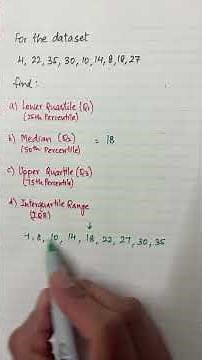 For the dataset
4, 22, 35, 30, 10, 14, 8, 18, 27
find:
a) Lower Quartile (Q1)
(25th Percentile)
b) Median (Q2) = 18
(50th Percentile)
c) Upper Quartile (Q3)
(75th Percentile)
d) Interquartile Range
(IQR)
4, 8, 10, 14, 18, 22, 27, 30, 35